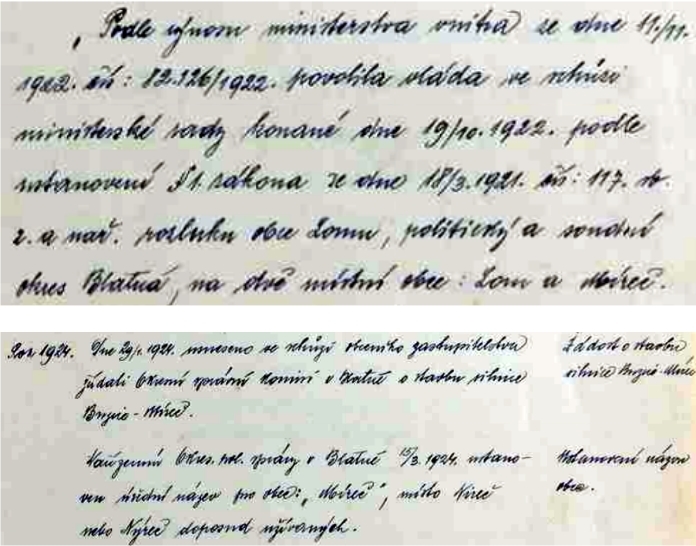 „Podle výnosu ministerstva vnitra ze dne 11./11.
1922. čís: 82.126/1922. povolila vláda ve schůzi
ministerské rady konané dne 19/10. 1922. podle
ustanovení § 1. zákona ze dne 18/3. 1921. čís: 117. sb.
z. a nař. rozluku obce Lomu, politický a soudní
okres Blatná, na dvě místní obce: Lom a Míreč.
Rok 1924. Dne 29/1. 1924. usneseno ve schůzi obecního zastupitelstva
žádati Okresní správní komisi v Blatné o stavbu silnice
Buzice - Míreč.
Žádost o stavbu
silnice Buzice - Míreč
Nařízením Okres. pol. správy v Blatné 15/3. 1924. ustano-
ven úřední název pro obec: „Míreč", místo Níreč
nebo Nýreč doposud užívaných.
Ustanovení názvu
obce.